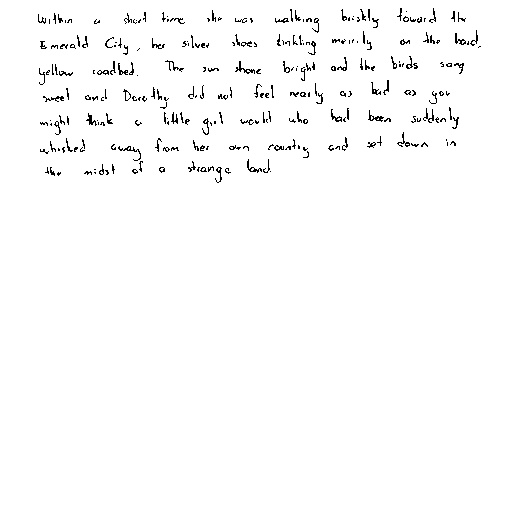 Within a short time she was walking briskly toward the
Emerald City, her silver shoes tinkling merrily on the hard,
yellow roadbed. The sun shone bright and the birds sang
sweet and Dorothy did not feel nearly as bad as you
might think a little girl would who had been suddenly
whisked away from her own country and set down in
the midst of a strange land